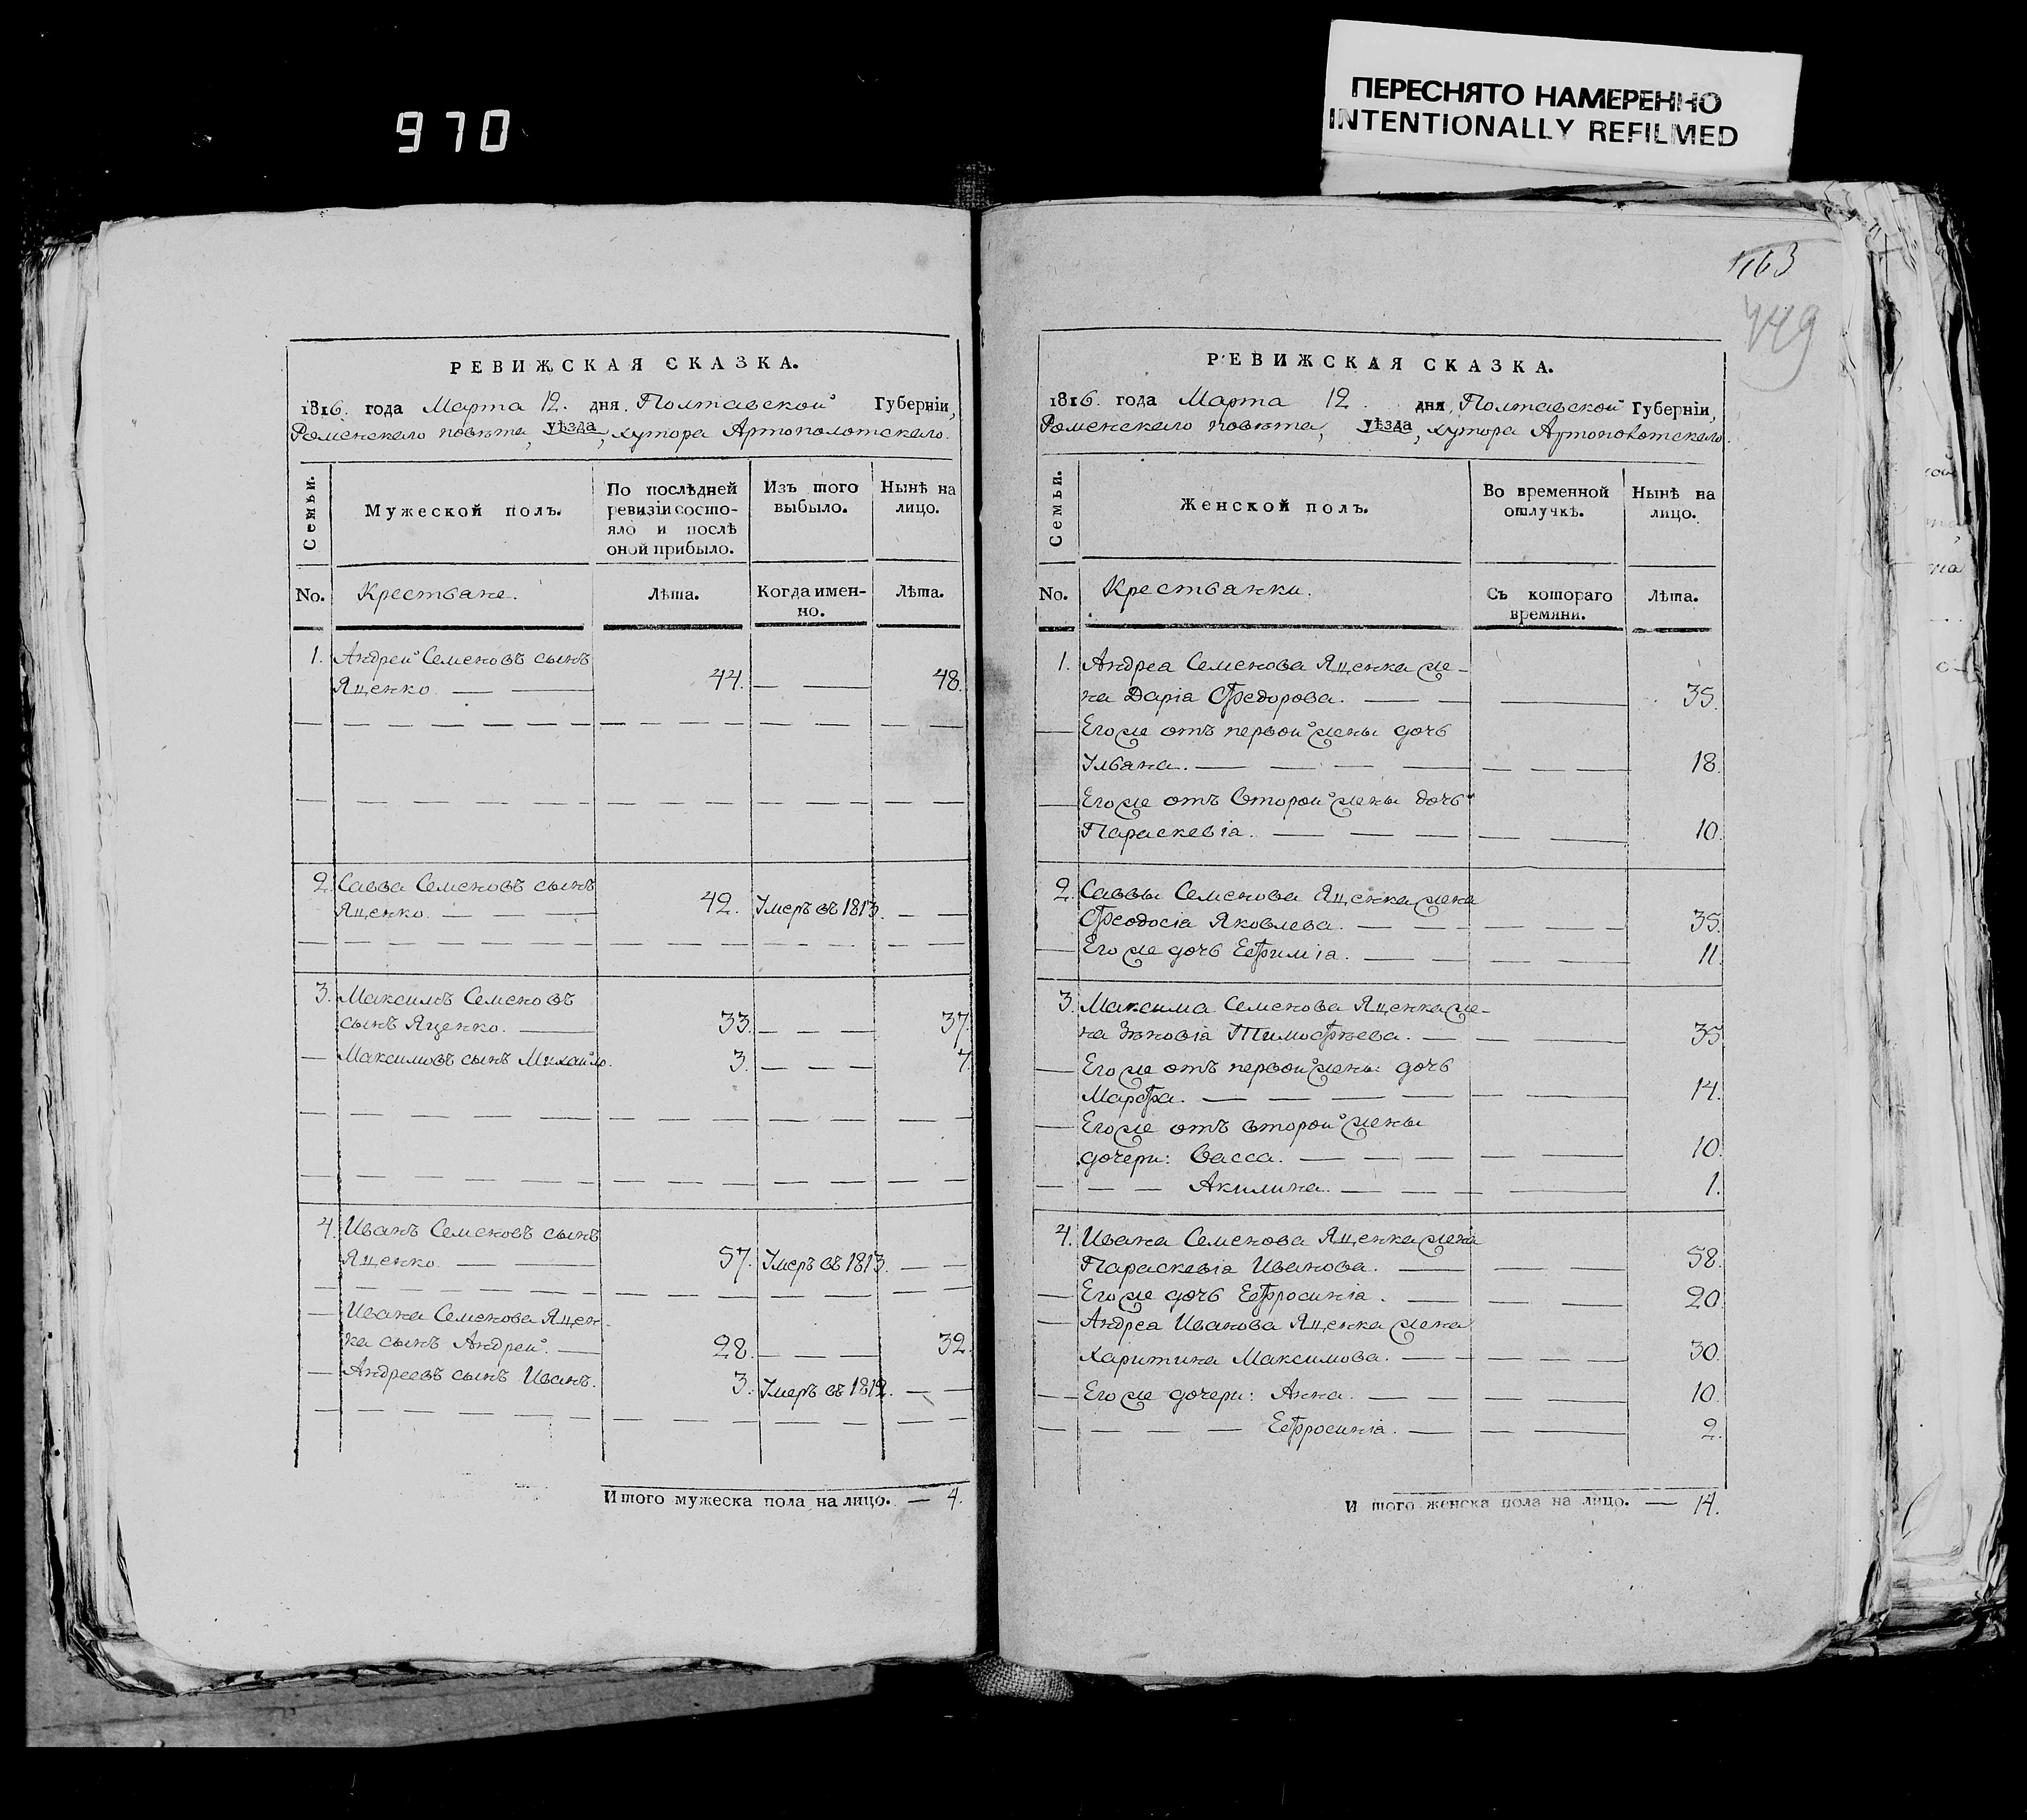 970
ПЕРЕСНЯТО НАМЕРЕННО
INTENTIONALLY REFILMED
РЕВИЖСКАЯ СКАЗКА.
1816. года Марта 12. дня. Полтавской Губернїи,
Роменского повѣта, уѣзда, хутора Артополотского.
Семьи.
Мужеской полъ.
По послѣдней
ревизїи состо-
яло и послѣ
оной прибыло.
Изъ того
выбыло.
Нынѣ на
лицо.
No. Крестьяне. Лѣта. Когда имен-
но. Лѣта.
1. Андрей Семеновъ сынъ
Яценко. 44. 48.
2. Савва Семеновъ сынъ
Яценко. 42. Умеръ въ 1813.
3. Максимъ Семеновъ
сынъ Яценко. 33. 37.
Максимовъ сынъ Михайло. 3. 7.
4. Иванъ Семеновъ сынъ
Яценко. 57. Умеръ въ 1813.
Ивана Семенова Яцен-
ка сынъ Андрей. 28. 32.
Андреевъ сынъ Иванъ. 3. Умеръ въ 1812.
Итого мужеска пола на лицо. — 4.
449
РЕВИЖСКАЯ СКАЗКА.
1816. года Марта 12. дня, Полтавской Губернїи,
Роменского повѣта, уѣзда, хутора Артополотского.
Семьи.
Женской полъ.
Во временной
отлучкѣ.
Нынѣ на
лицо.
No. Крестьянки. Съ котораго
времяни. Лѣта.
1. Андреа Семенова Яценка же-
на Дарїа Федорова. 35.
Его же отъ первой жены дочь
Ульяна. 18.
Его же отъ второй жены дочь
Параскевїа. 10.
2. Саввы Семенова Яценка жена
Феодосїа Яковлева. 35.
Его же дочь Ефимїа. 11.
3. Максима Семенова Яценка же-
на Зѣновїа Тимофѣева. 35
Его же отъ первой жены дочь
Марфа. 14.
Его же отъ второй жены
дочери: Васса. 10.
Акилина. 1.
4. Ивана Семенова Яценка жена
Параскевїа Иванова. 58.
Его же дочь Ефросинїа. 20.
Андреа Иванова Яценка жена
Харитина Максимова. 30.
Его же дочери: Анна. 10.
Ефросинїа. 2.
И того женска пола на лицо. — 14.